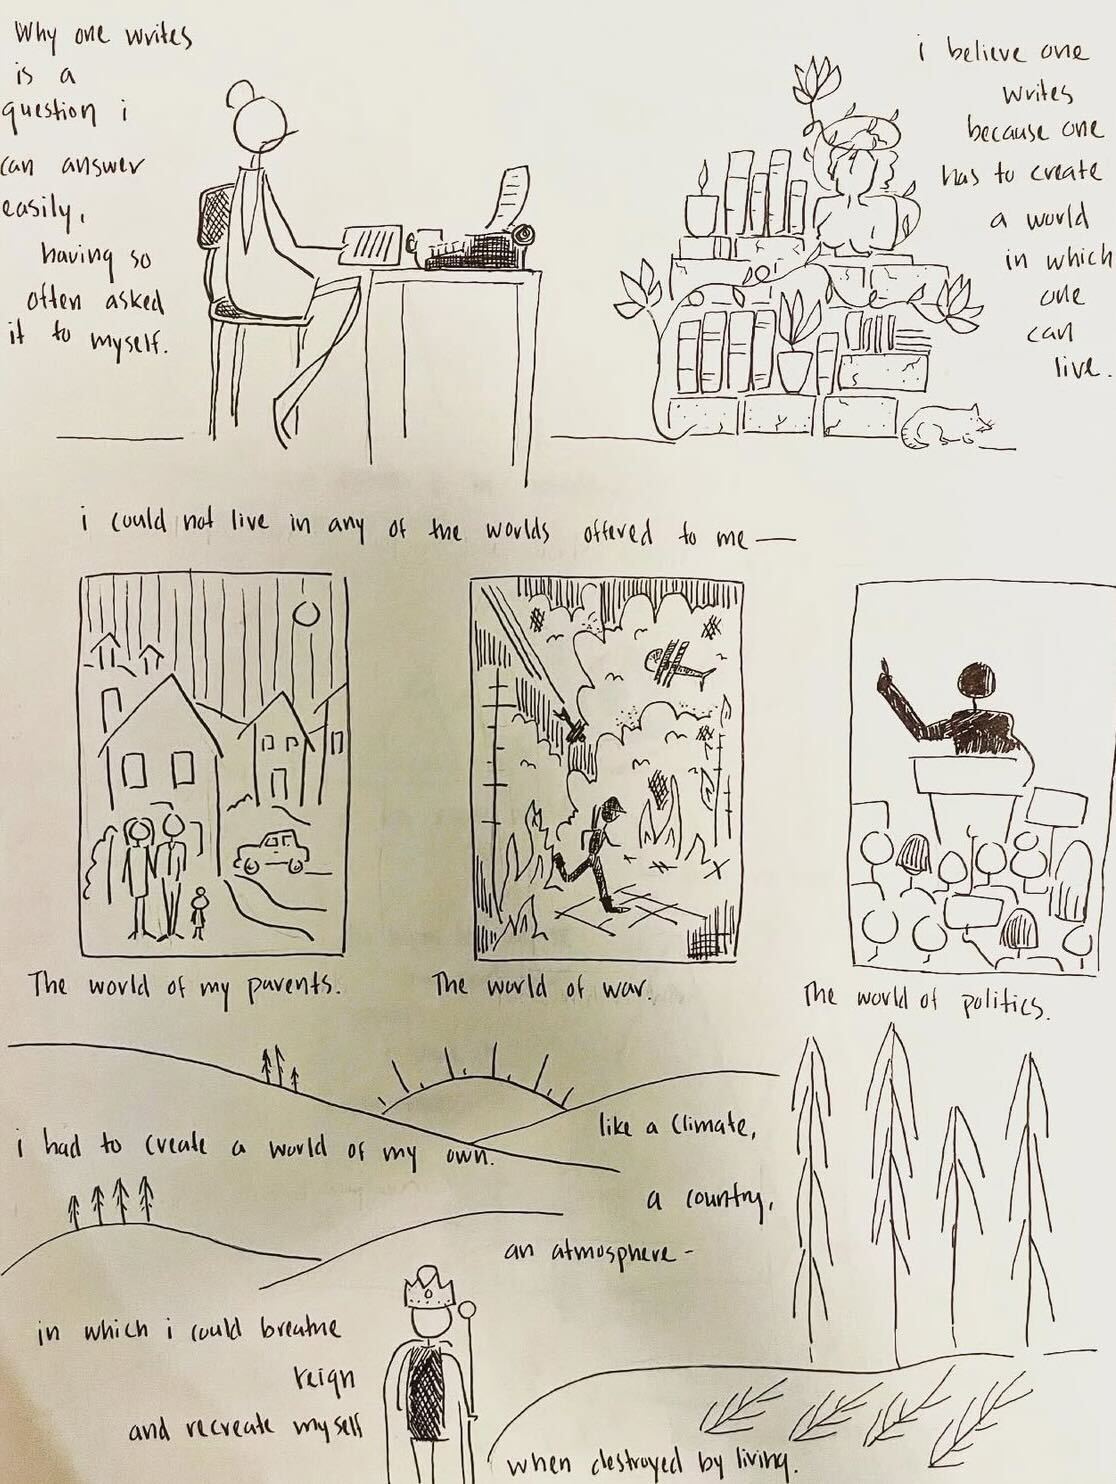 Why one writes
is a
question i
can answer
easily,
having so
often asked
it to myself.
i believe one
writes
because one
has to create
a world
in which
one
can
live.
i could not live in any of the worlds offered to me —
The world of my parents.
The world of war.
The world of politics.
i had to create a world of my own.
like a climate,
a country,
an atmosphere -
in which i could breathe
reign
and recreate myself
when destroyed by living.